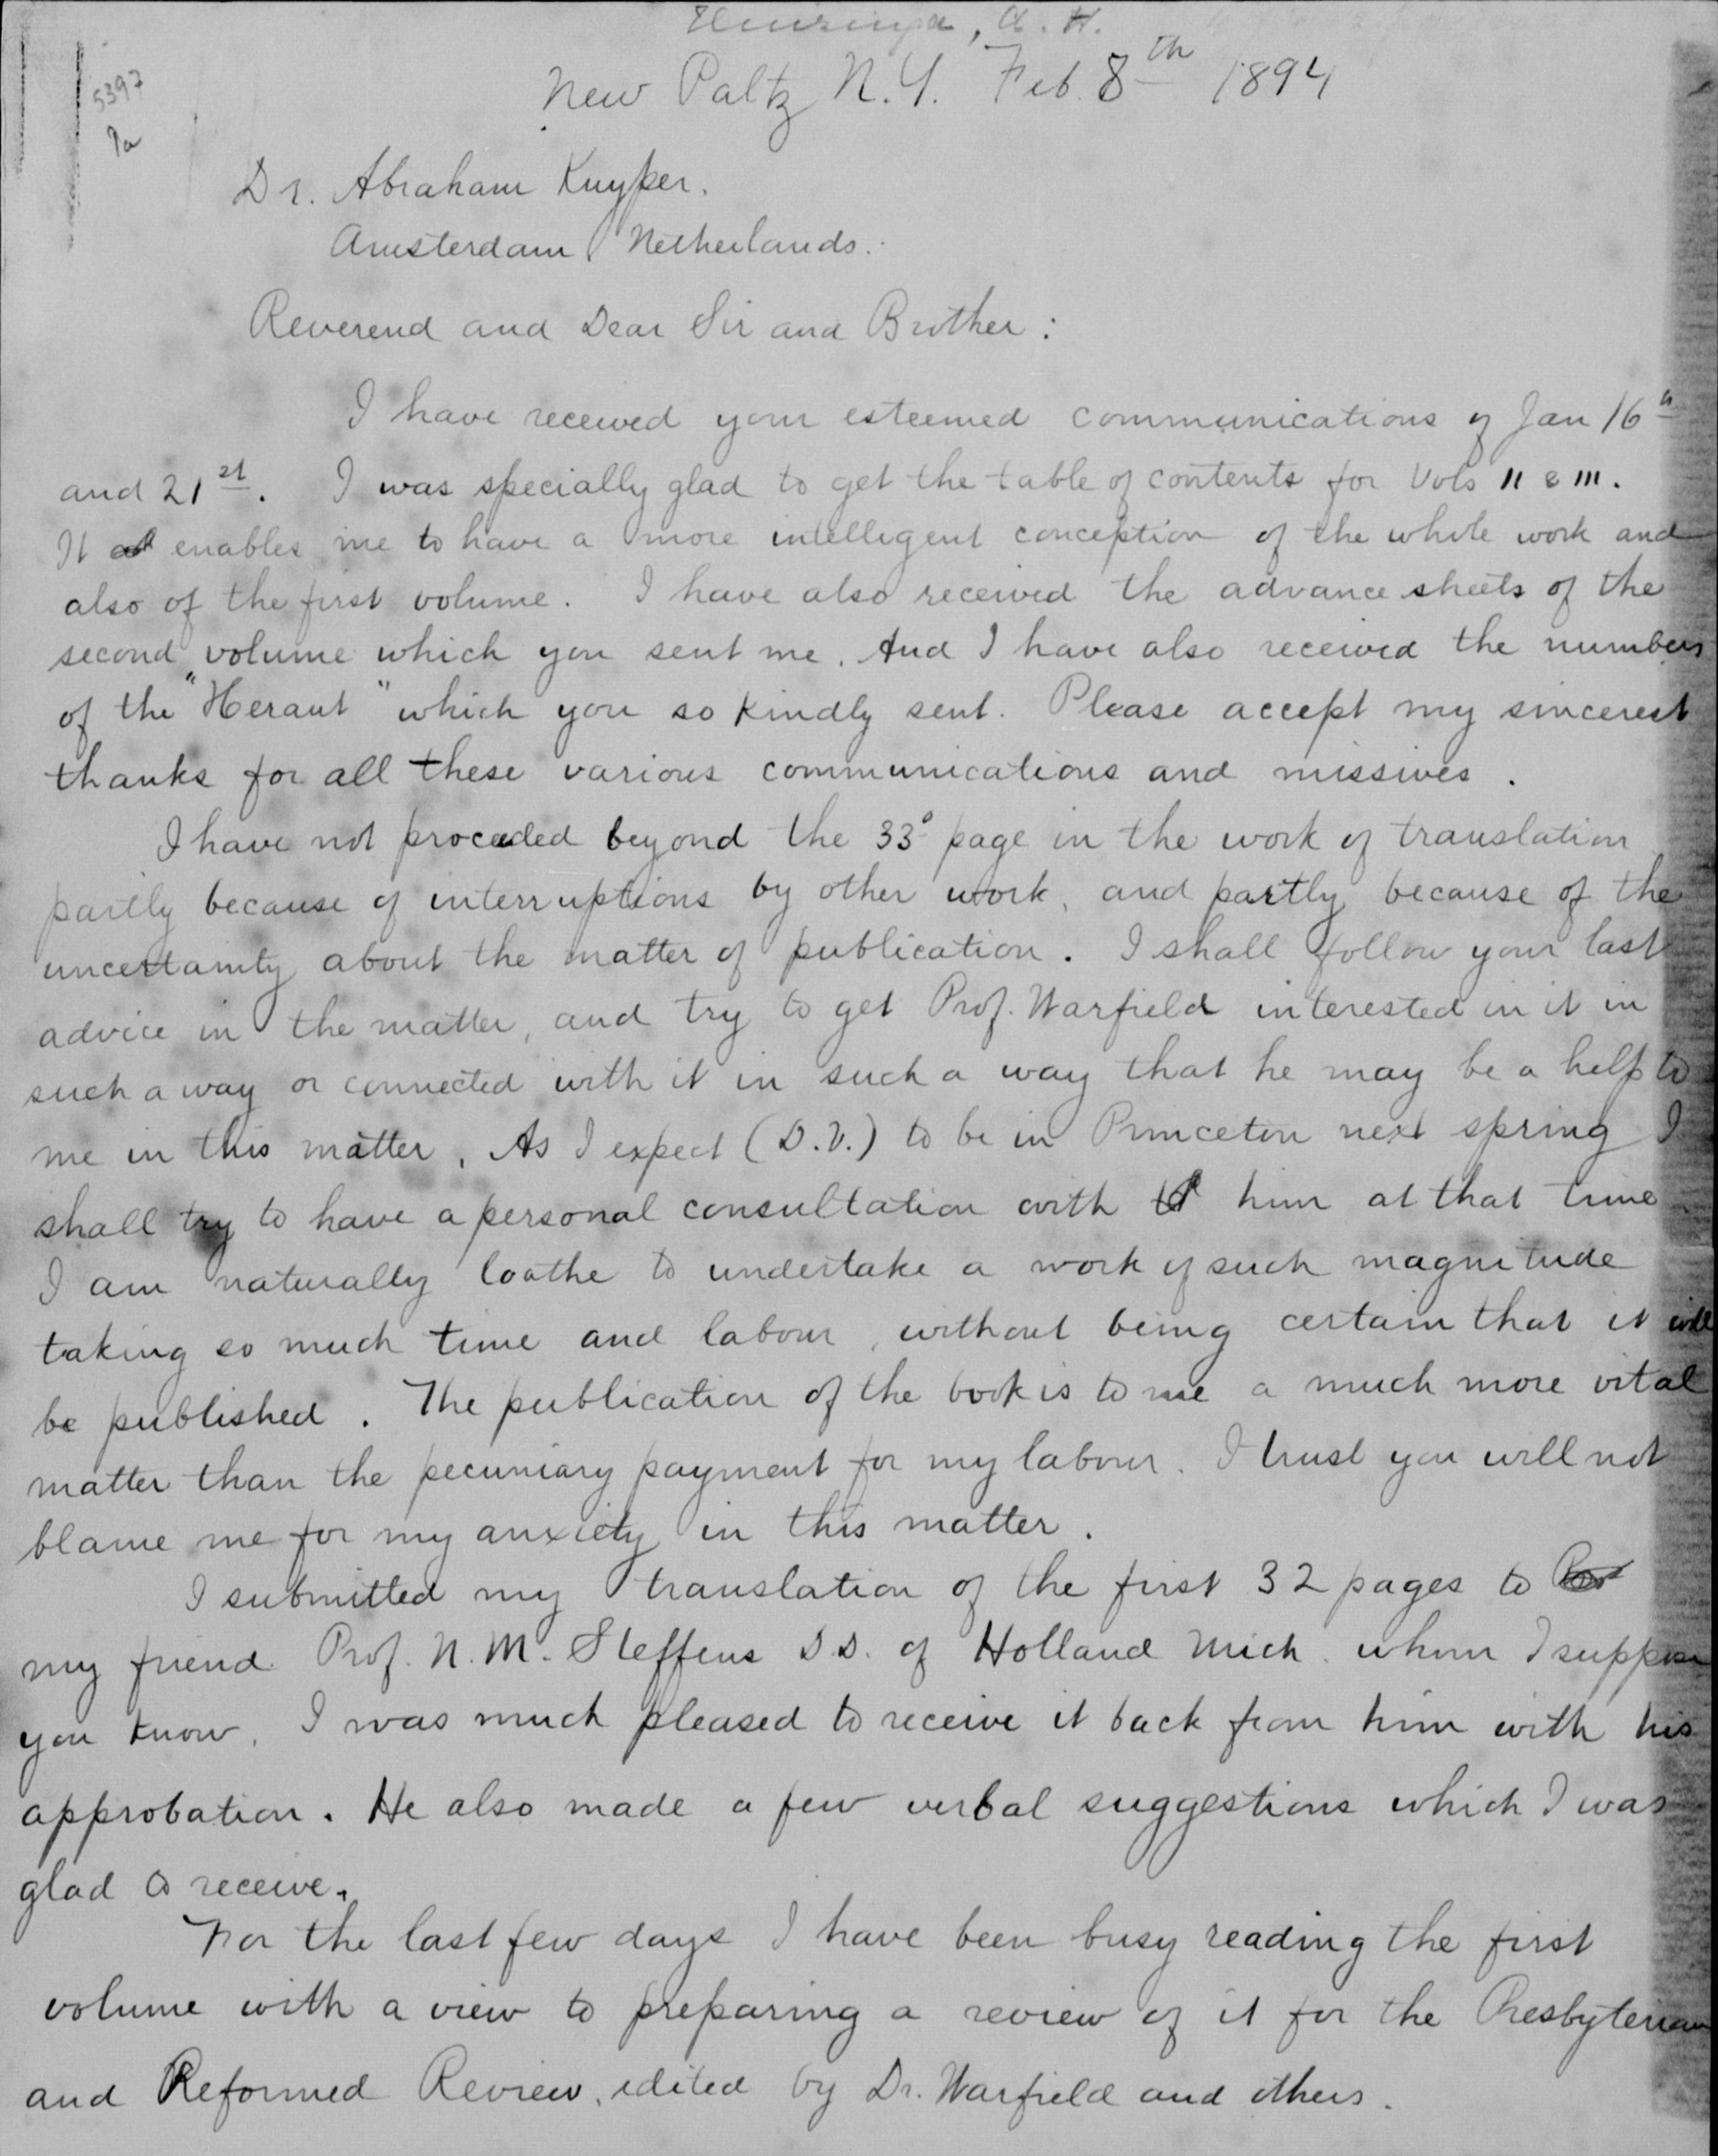 Huizinga, A. H.
New Paltz N.Y. Feb. 8th 1894
5397
9a
Dr. Abraham Kuyper.
Amsterdam Netherlands.
Reverend and Dear Sir and Brother:
I have received your esteemed communications of Jan 16th
and 21st. I was specially glad to get the table of contents for Vols II & III.
It enables me to have a more intelligent conception of the whole work and
also of the first volume. I have also received the advance sheets of the
second volume which you sent me. And I have also received the numbers
of the "Heraut" which you so kindly sent. Please accept my sincerest
thanks for all these various communications and missives.
I have not proceeded beyond the 33d page in the work of translation
partly because of interruptions by other work, and partly because of the
uncertainty about the matter of publication. I shall follow your last
advice in the matter, and try to get Prof. Warfield interested in it in
such a way or connected with it in such a way that he may be a help to
me in this matter. As I expect (D.V.) to be in Princeton next spring I
shall try to have a personal consultation with him at that time
I am naturally loathe to undertake a work of such magnitude
taking so much time and labour, without being certain that it will
be published. The publication of the book is to me a much more vital
matter than the pecuniary payment for my labour. I trust you will not
blame me for my anxiety in this matter.
I submitted my translation of the first 32 pages to
my friend Prof. N. M. Steffens D.D. of Holland Mich. whom I suppose
you know. I was much pleased to receive it back from him with his
approbation. He also made a few verbal suggestions which I was
glad to receive.
For the last few days I have been busy reading the first
volume with a view to preparing a review of it for the Presbyterian
and Reformed Review, edited by Dr. Warfield and others.